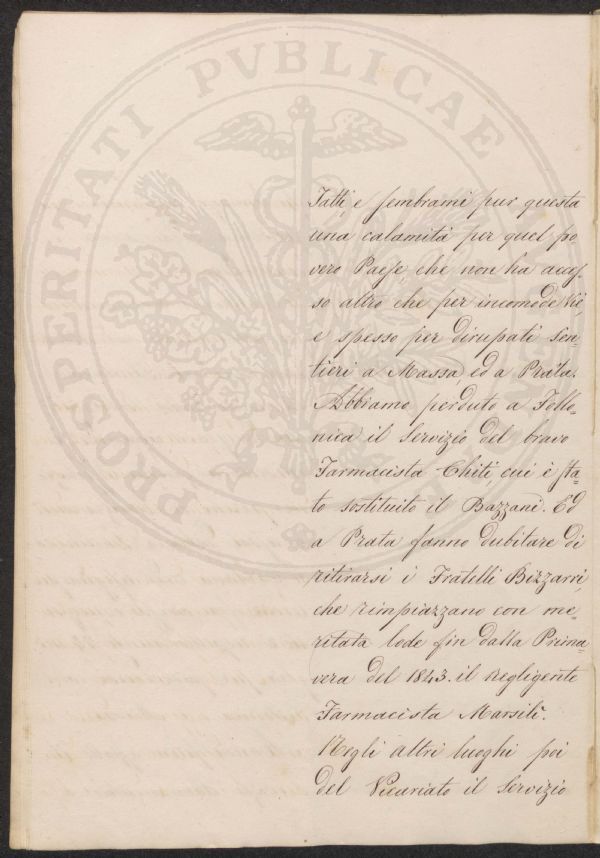 PROSPERITATI PVBLICAE
Tatti, e sembrami pur questa
una calamità per quel po„
vero Paese, che non ha acces„
so altro che per incomode Vie,
e spesso per dirupati Sen„
tieri a Massa, ed a Prata.
Abbiamo perduto a Follo„
nica il Servizio del bravo
Farmacista Chiti cui è sta„
to sostituito il Bazzani. Ed
a Prata fanno dubitare di
ritirarsi i Fratelli Bizzarri,
che rimpiazzano con me„
ritata lode fin dalla Prima„
vera del 1843. il negligente
Farmacista Marsili.
Negli altri luoghi poi
del Vicariato il Servizio